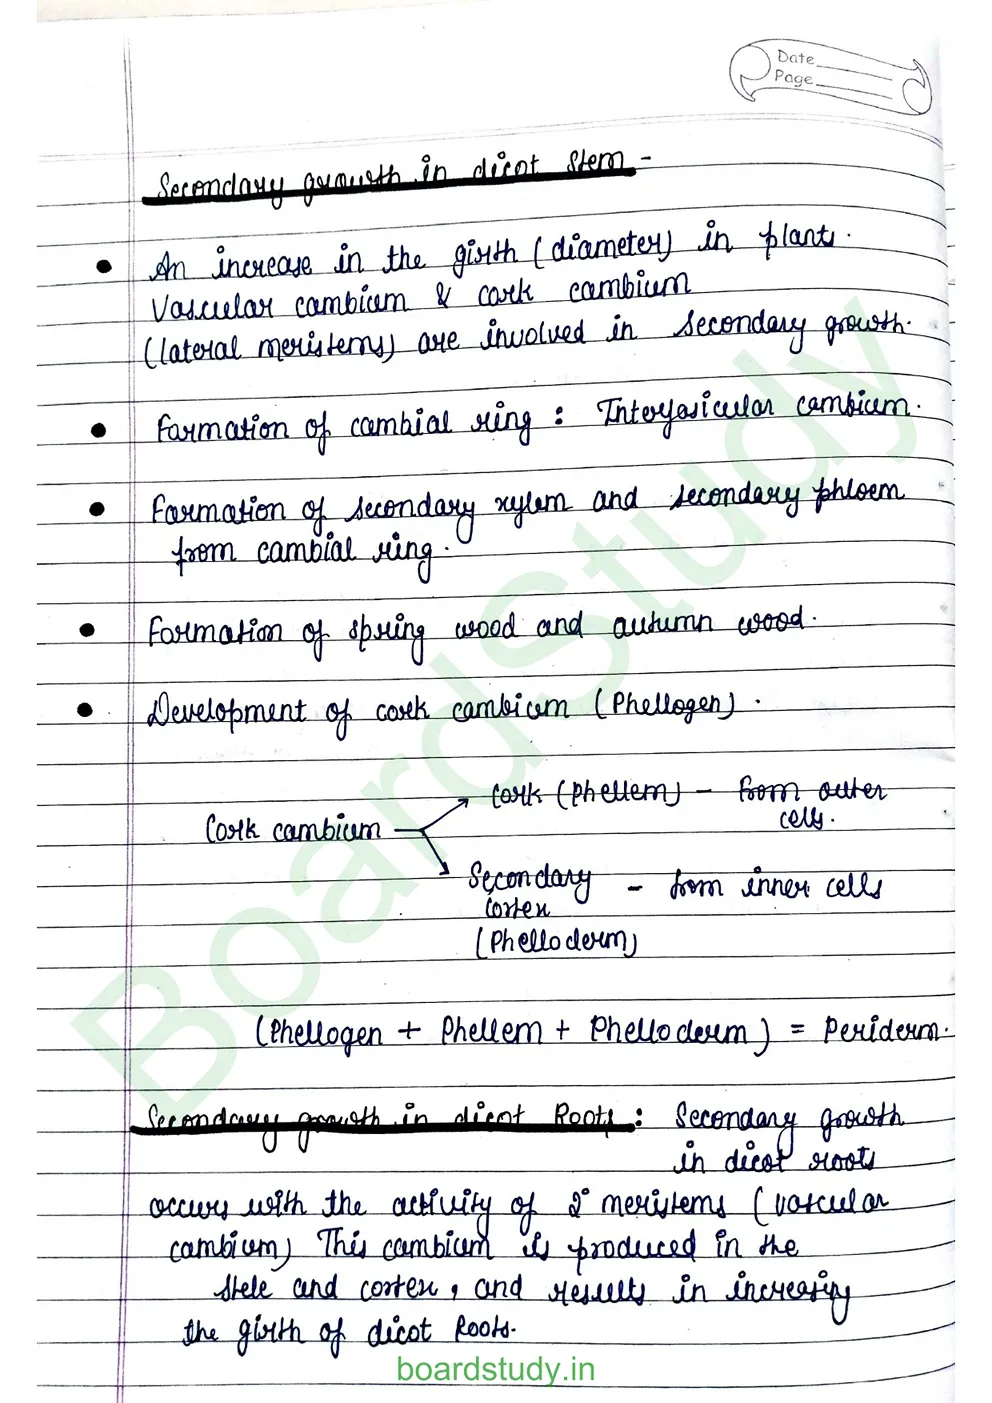 Date
Page
Secondary growth in dicot Stem -
• An increase in the girth (diameter) in plant.
Vascular cambium & cork cambium
(lateral meristems) are involved in secondary growth.
• Formation of cambial ring : Interfasicular cambium.
• Formation of secondary xylem and secondary phloem
from cambial ring.
• Formation of spring wood and autumn wood.
• Development of cork cambium (Phellogen).
Cork (Phellem) - from outer
cells.
Cork cambium
Secondary - from inner cells
Cortex
(Phelloderm)
(Phellogen + Phellem + Phelloderm) = Periderm.
Secondary growth in dicot Roots : Secondary growth
in dicot roots
occurs with the activity of 2° meristems (vascular
cambium) This cambium is produced in the
stele and cortex, and results in increasing
the girth of dicot Roots.
BoardStudy
boardstudy.in